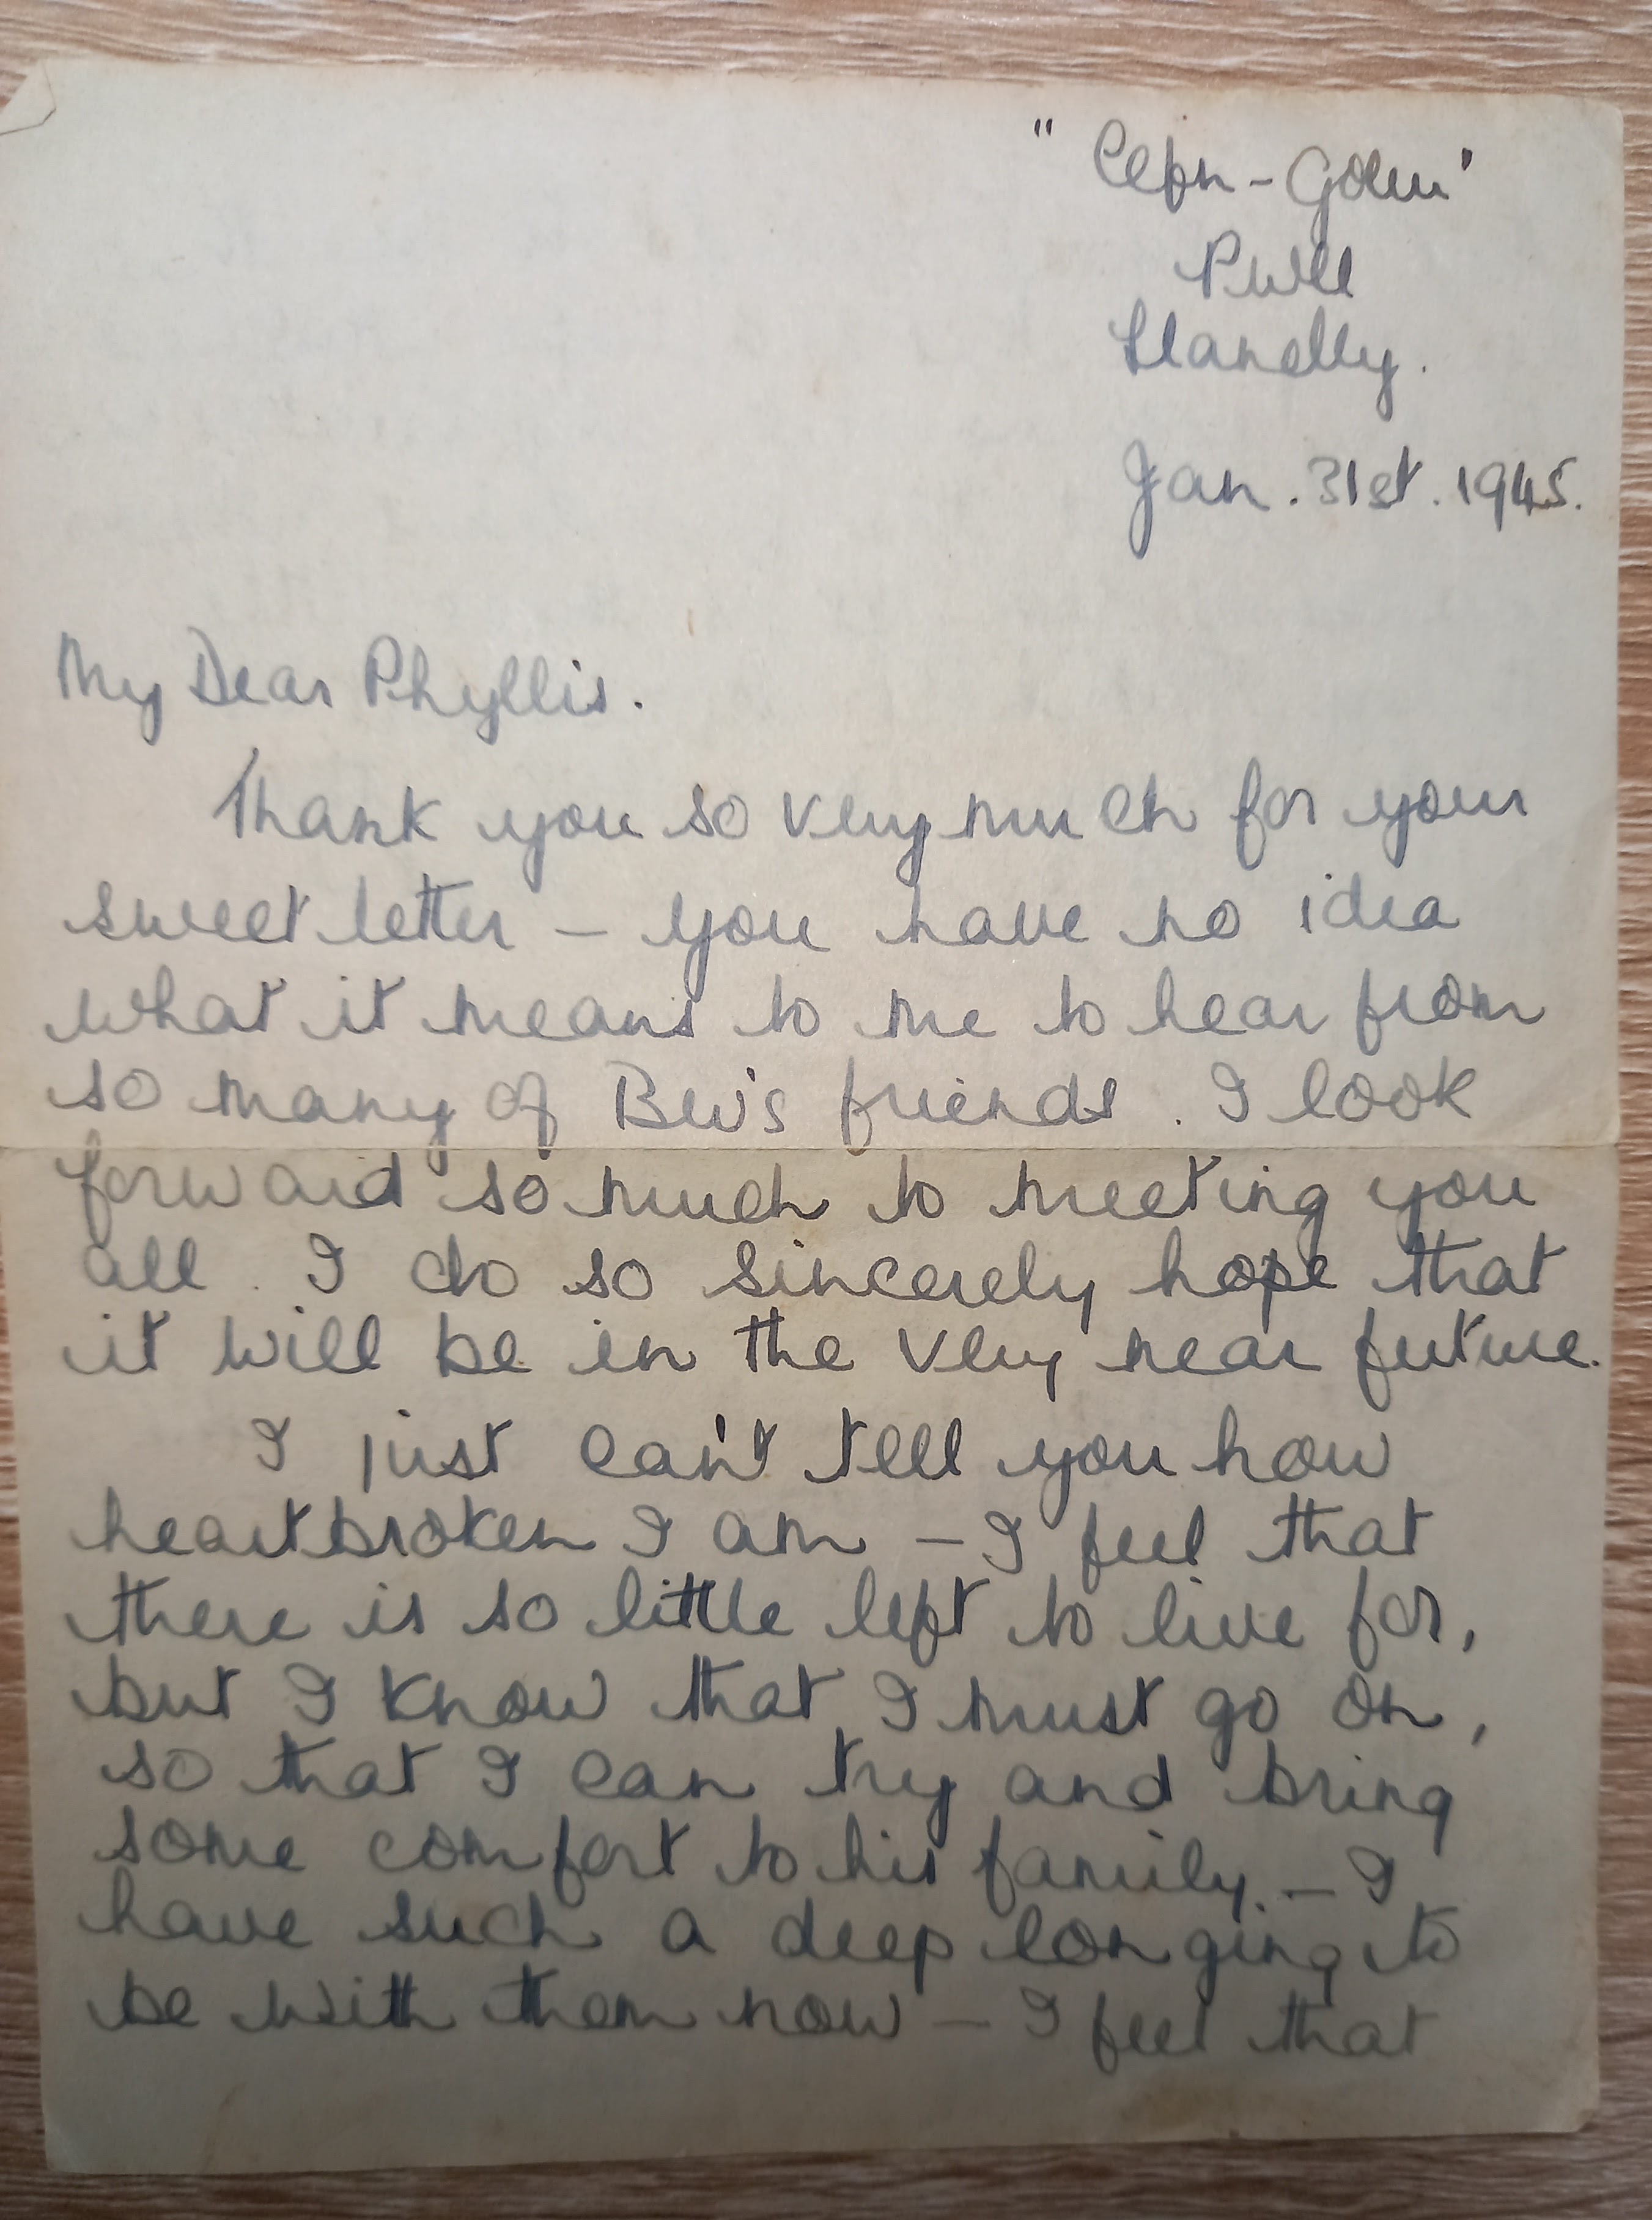 " Cefn-Golau"
Pwll
Llanelly.
Jan. 31st. 1945.
My Dear Phyllis.
Thank you so very much for your
sweet letter – you have no idea
what it means to me to hear from
so many of friends. I look
forward so much to meeting you
all. I do so sincerely hope that
it will be in the very near future.
I just can't tell you how
heartbroken I am – I feel that
there is so little left to live for,
but I know that I must go on,
so that I can try and bring
some comfort to his family. – I
have such a deep longing to
be with them now – I feel that